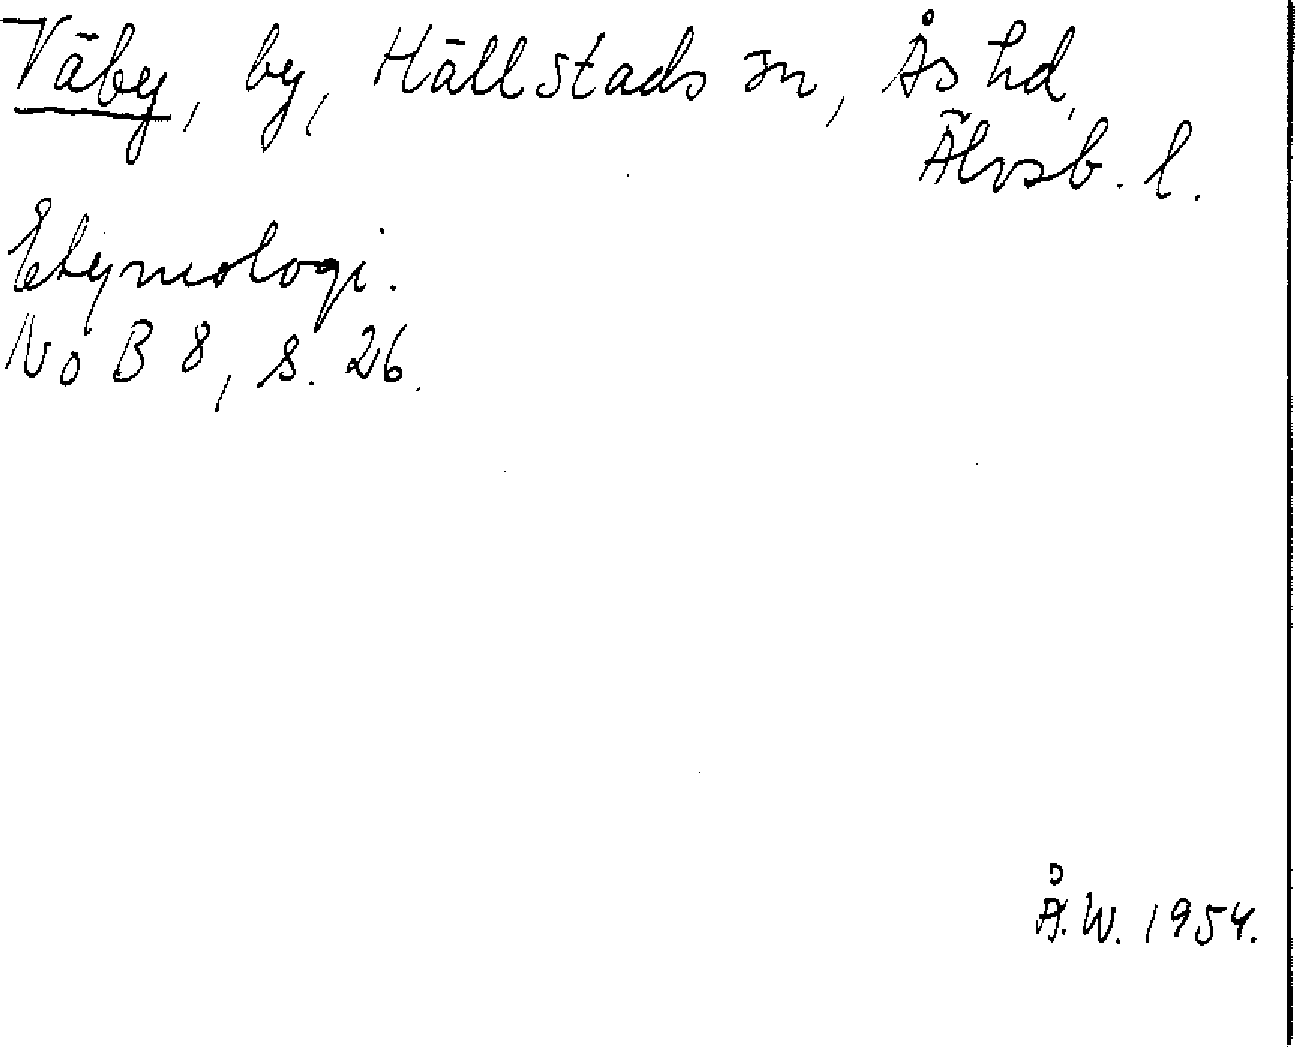 Väby, by, Hällstads sn, Ås hd,
Älvsb. l.
Etymologi.
NoB 8, s. 26.
Å.W. 1954.